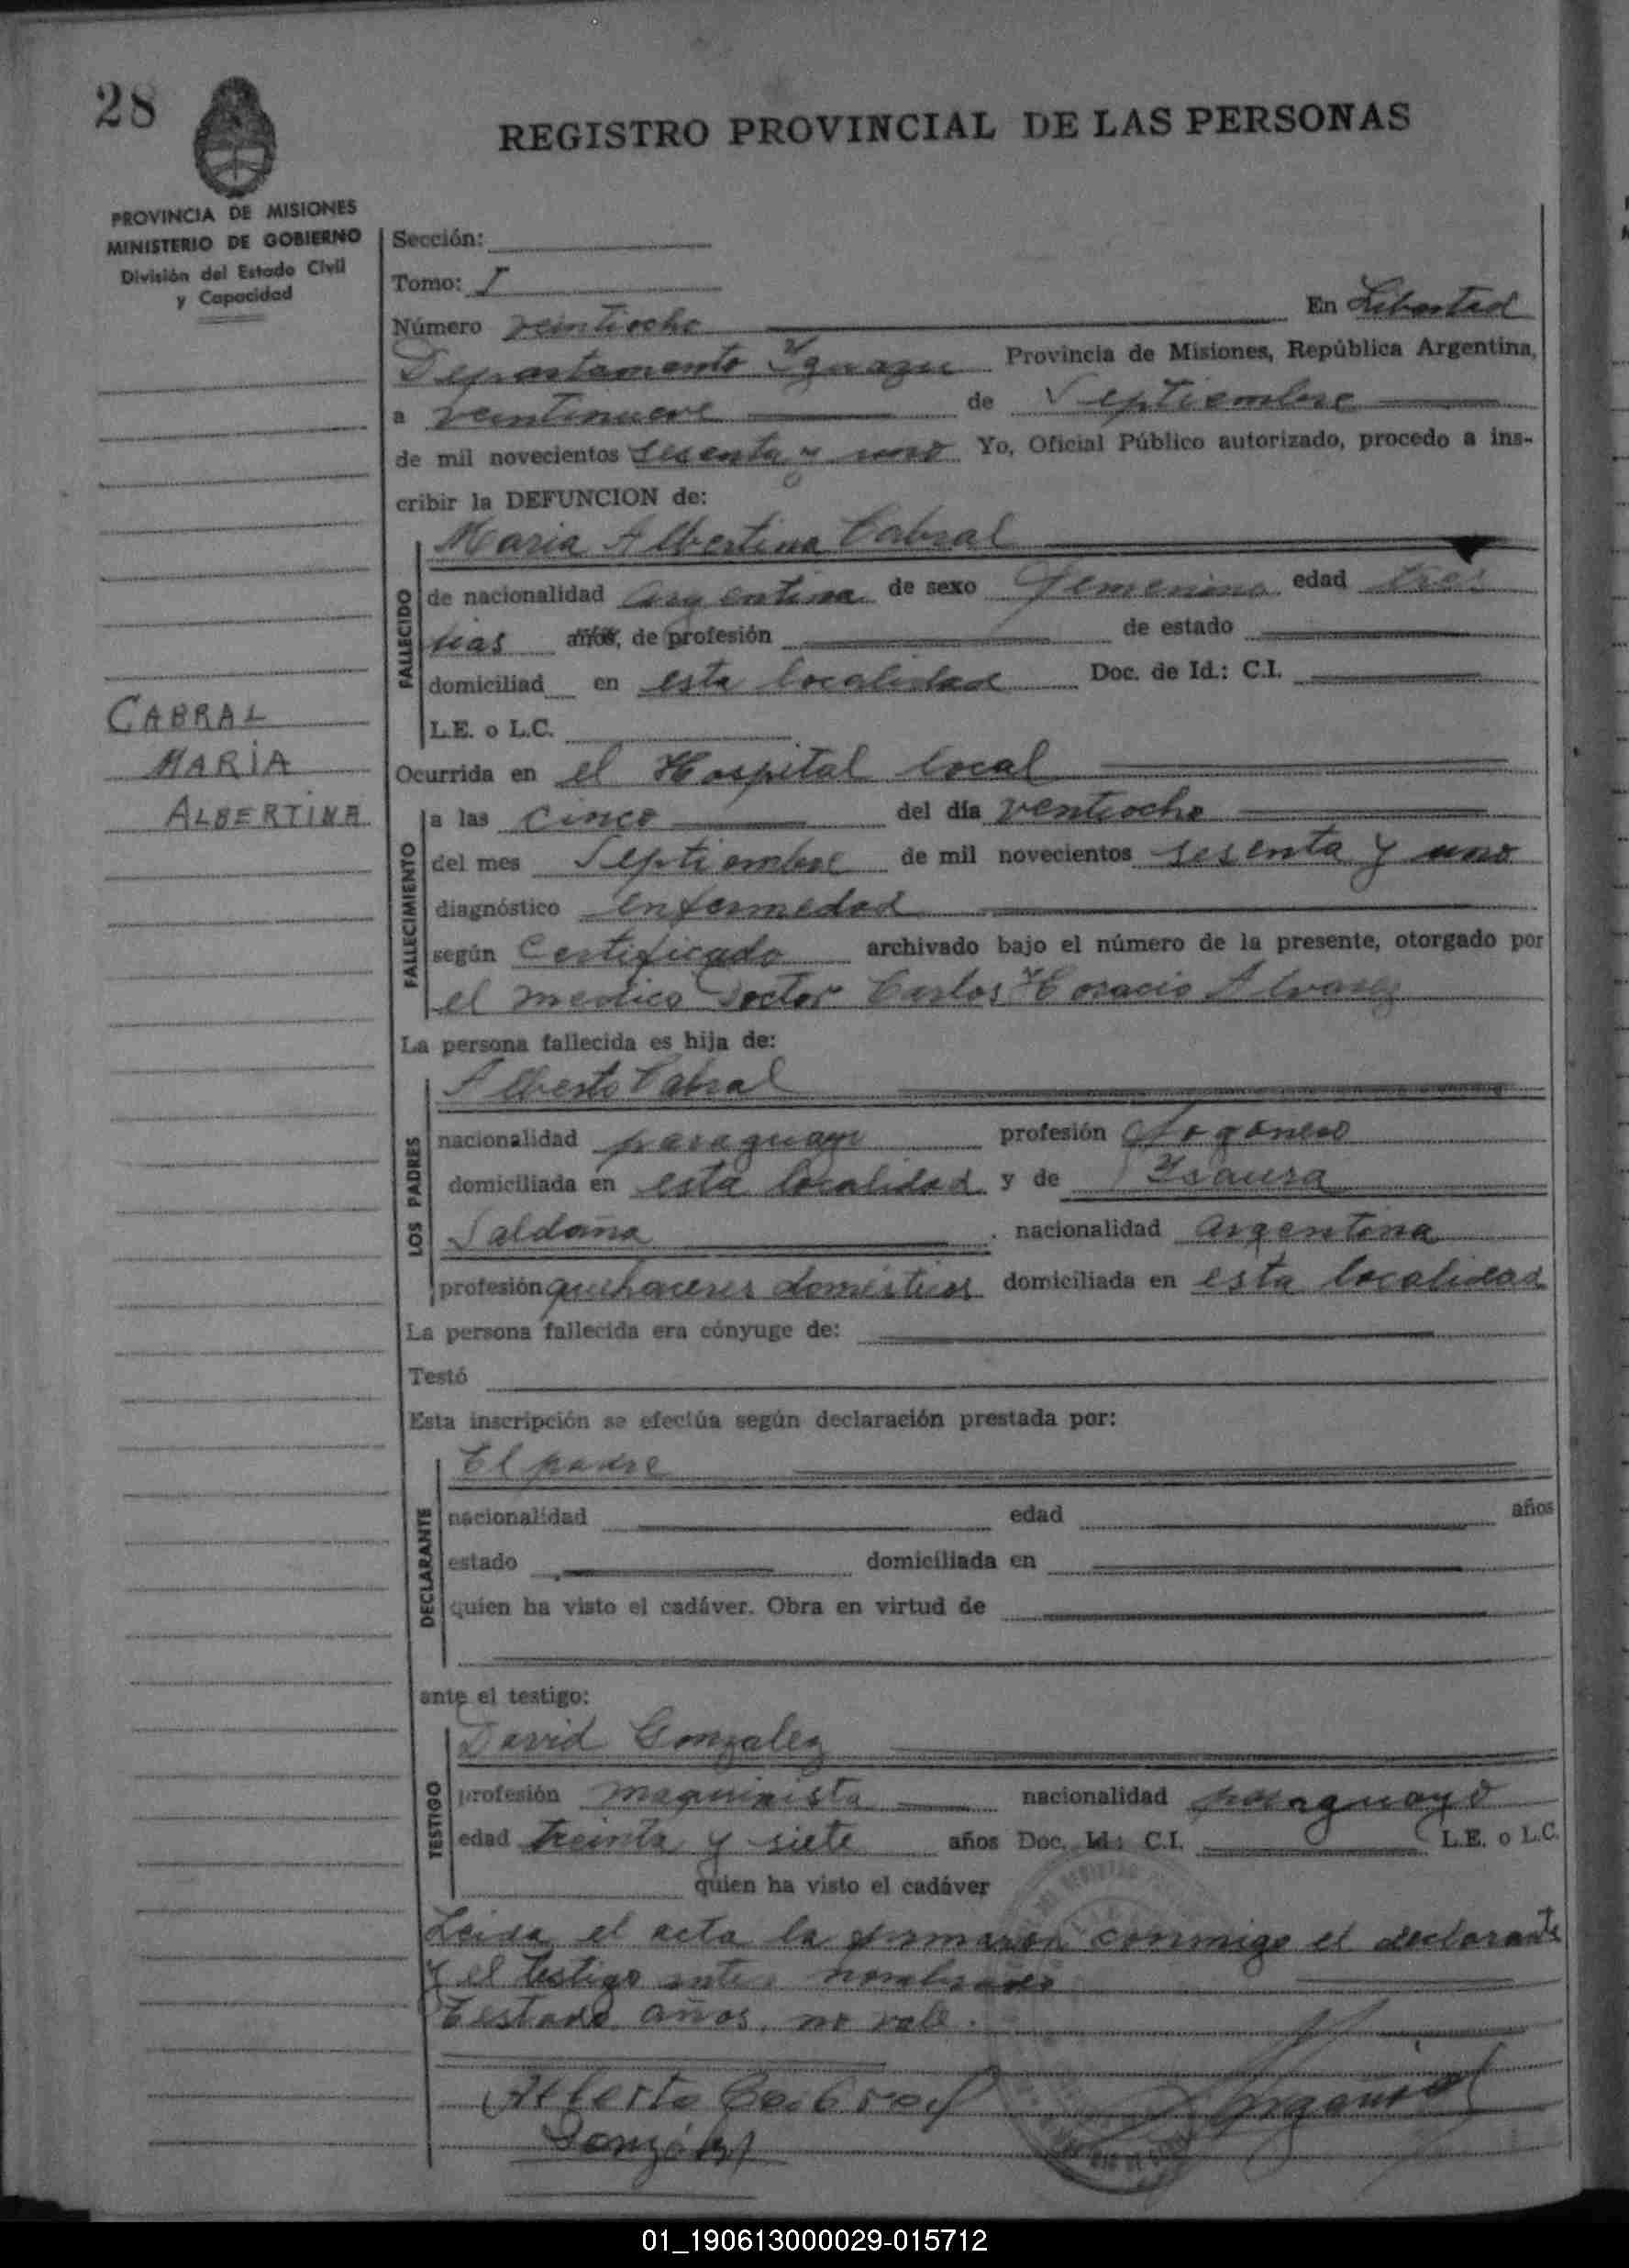 28
REGISTRO PROVINCIAL DE LAS PERSONAS
PROVINCIA DE MISIONES
MINISTERIO DE GOBIERNO
División del Estado Civil
y Capacidad
Sección:
Tomo: I
Número veintiocho En Libertad
Departamento Yguazu Provincia de Misiones, República Argentina,
a veintinueve de Septiembre
de mil novecientos sesenta y uno Yo, Oficial Público autorizado, procedo a ins-
cribir la DEFUNCION de:
FALLECIDO
Maria Albertina Cabral
de nacionalidad argentina de sexo femenino edad tres
dias años, de profesión de estado
domiciliad en esta localidad Doc. de Id.: C.I.
L.E. o L.C.
CABRAL
MARIA
ALBERTINA
Ocurrida en el Hospital local
FALLECIMIENTO
a las cinco del día ventiocho
del mes Septiembre de mil novecientos sesenta y uno
diagnóstico enfermedad
según Certificado archivado bajo el número de la presente, otorgado por
el medico Doctor Carlos Horacio Alvarez
La persona fallecida es hija de:
LOS PADRES
Alberto Cabral
nacionalidad profesión
domiciliada en esta localidad y de Ysaura
Saldaña nacionalidad argentina
profesión quehaceres domésticos domiciliada en esta localidad
La persona fallecida era cónyuge de:
Testó
Esta inscripción se efectúa según declaración prestada por:
DECLARANTE
El padre
nacionalidad edad años
estado domiciliada en
quien ha visto el cadáver. Obra en virtud de
ante el testigo:
TESTIGO
David Gonzalez
profesión maquinista nacionalidad paraguayo
edad treinta y siete años Doc. Id.: C.I. L.E. o L.C.
quien ha visto el cadáver
Leida el acta la firmaron conmigo el declarante
y el testigo antes nombrados
Testado años, no vale.
Alberto Cabral
González
01_190613000029-015712